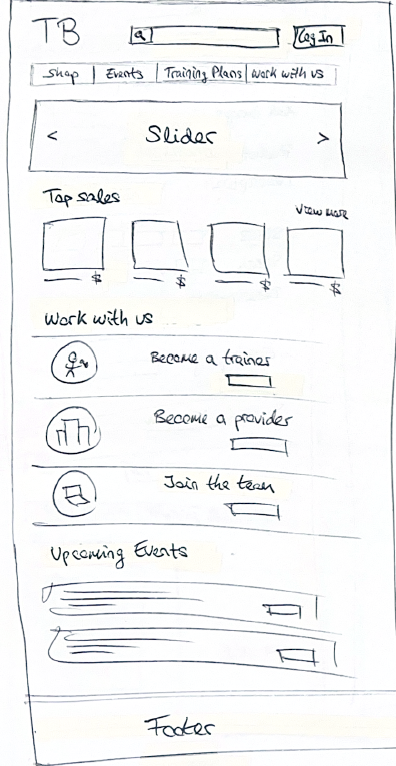 TB a Log In
Shop | Events | Training Plans | Work with us
< Slider >
Top sales
View more
$ $ $ $
Work with us
Become a trainer
Become a provider
Join the team
Upcoming Events
Footer